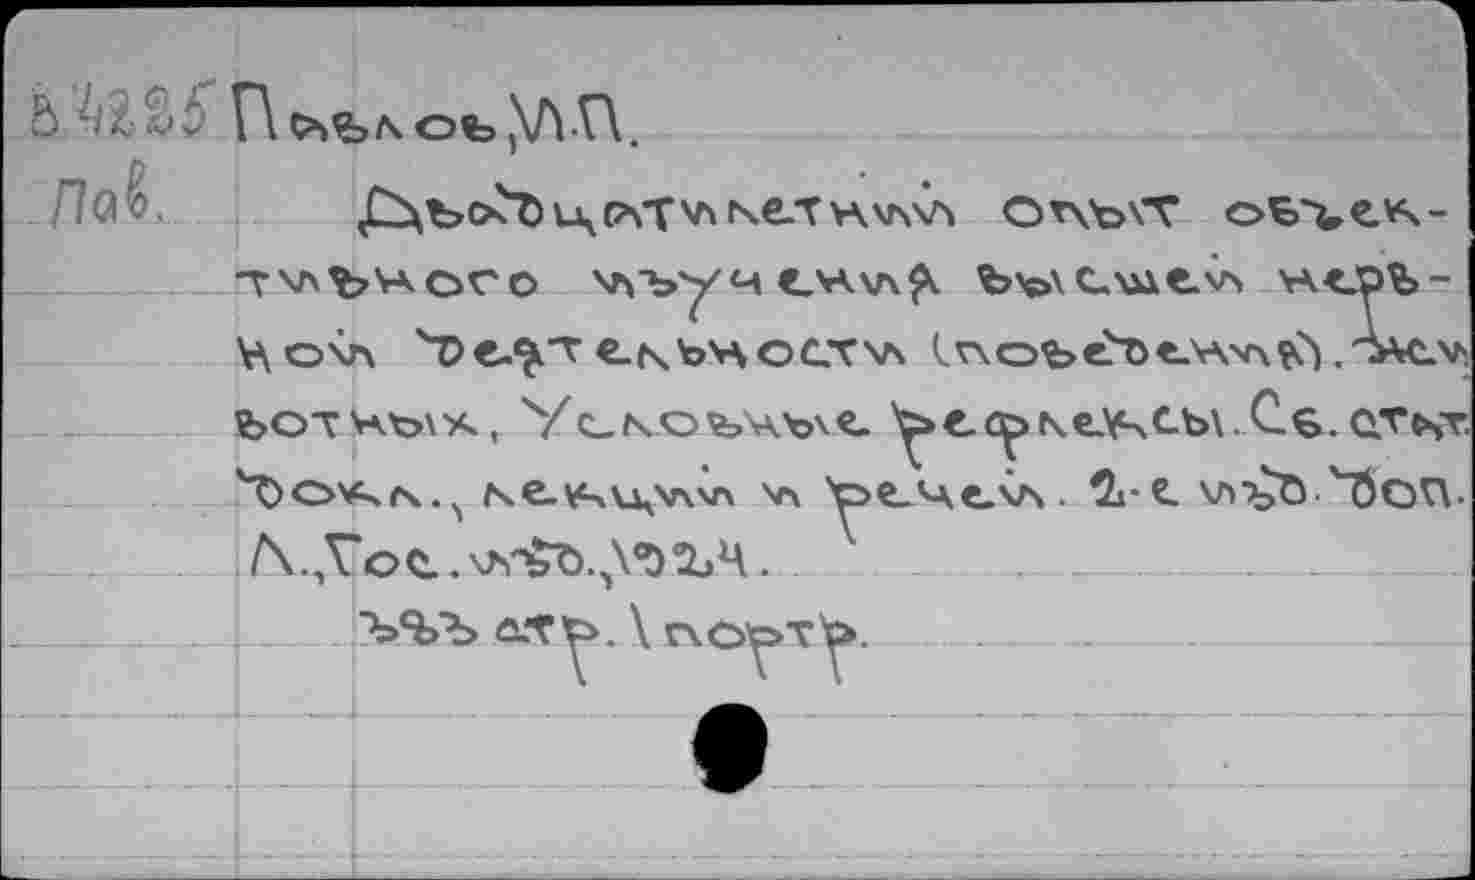 В 4225 Павлов, И.П.
Пав. Двадцатилетний опыт объек-
тивного изучения высшей нерв-
ной деятельности (поведения). Жи-
вотных, Условные рефлексы. Сб. стат.
докл., лекций и речей. 2-е изд. доп.
Л., Гос. изд., 1924.
393 стр. 1 портр.